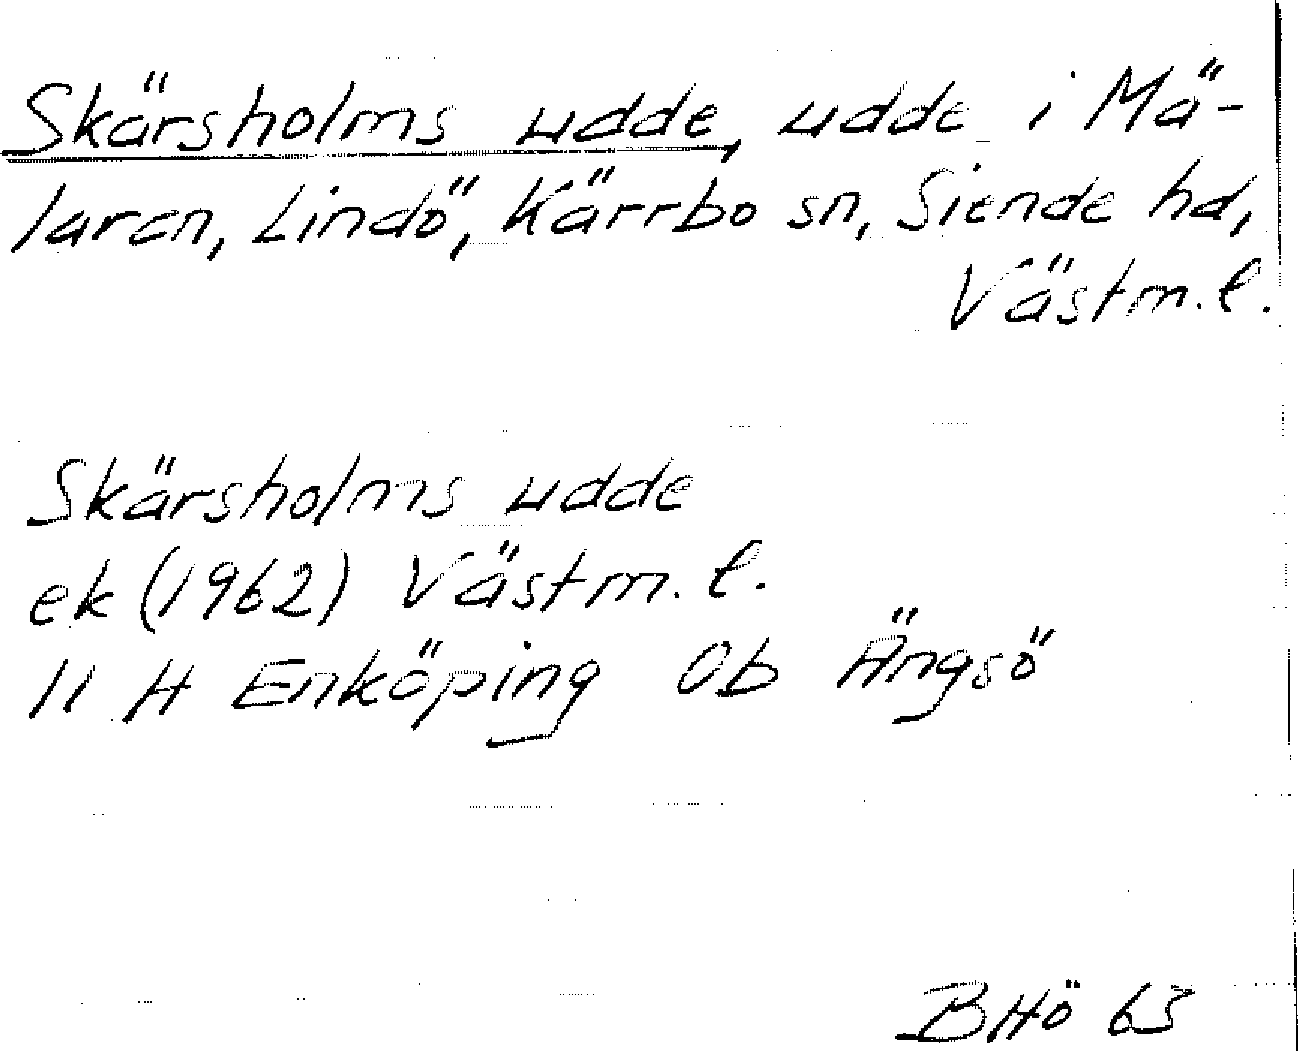 Skärsholms udde, udde i Mä-
laren, Lindö, Kärrbo sn, Siende hd,
Västm. l.
Skärsholms udde
ek (1962) Västm. l.
11 H Enköping 0b Ängsö
BHö 63